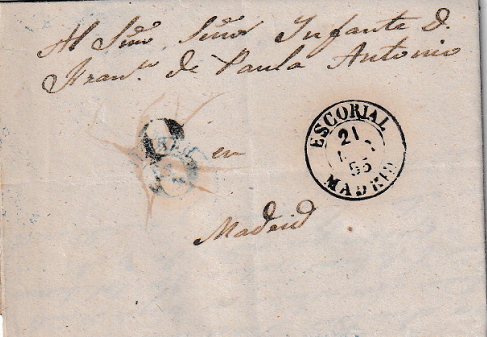 Al Smõ. Señor Infante D.
Franᶜᵒ. de Paula Antonio
en
Madrid
ESCORIAL
21
55
MADRID